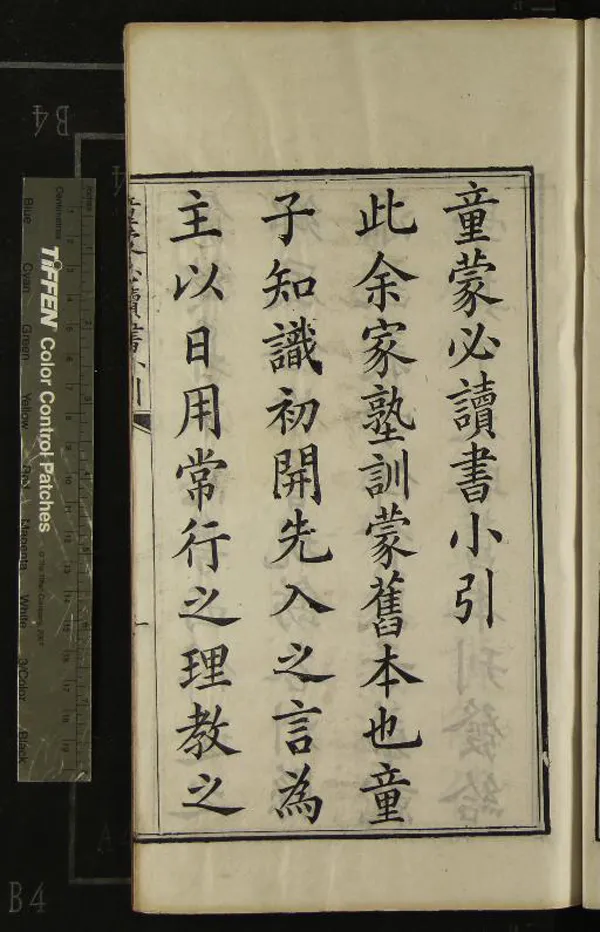 童蒙必讀書小引
此余家塾訓蒙舊本也童
子知識初開先入之言為
主以日用常行之理教之
一
B4
B4
TIFFEN Color Control Patches
Centimetres
Blue Cyan Green Yellow Red Magenta White 3/Color Black